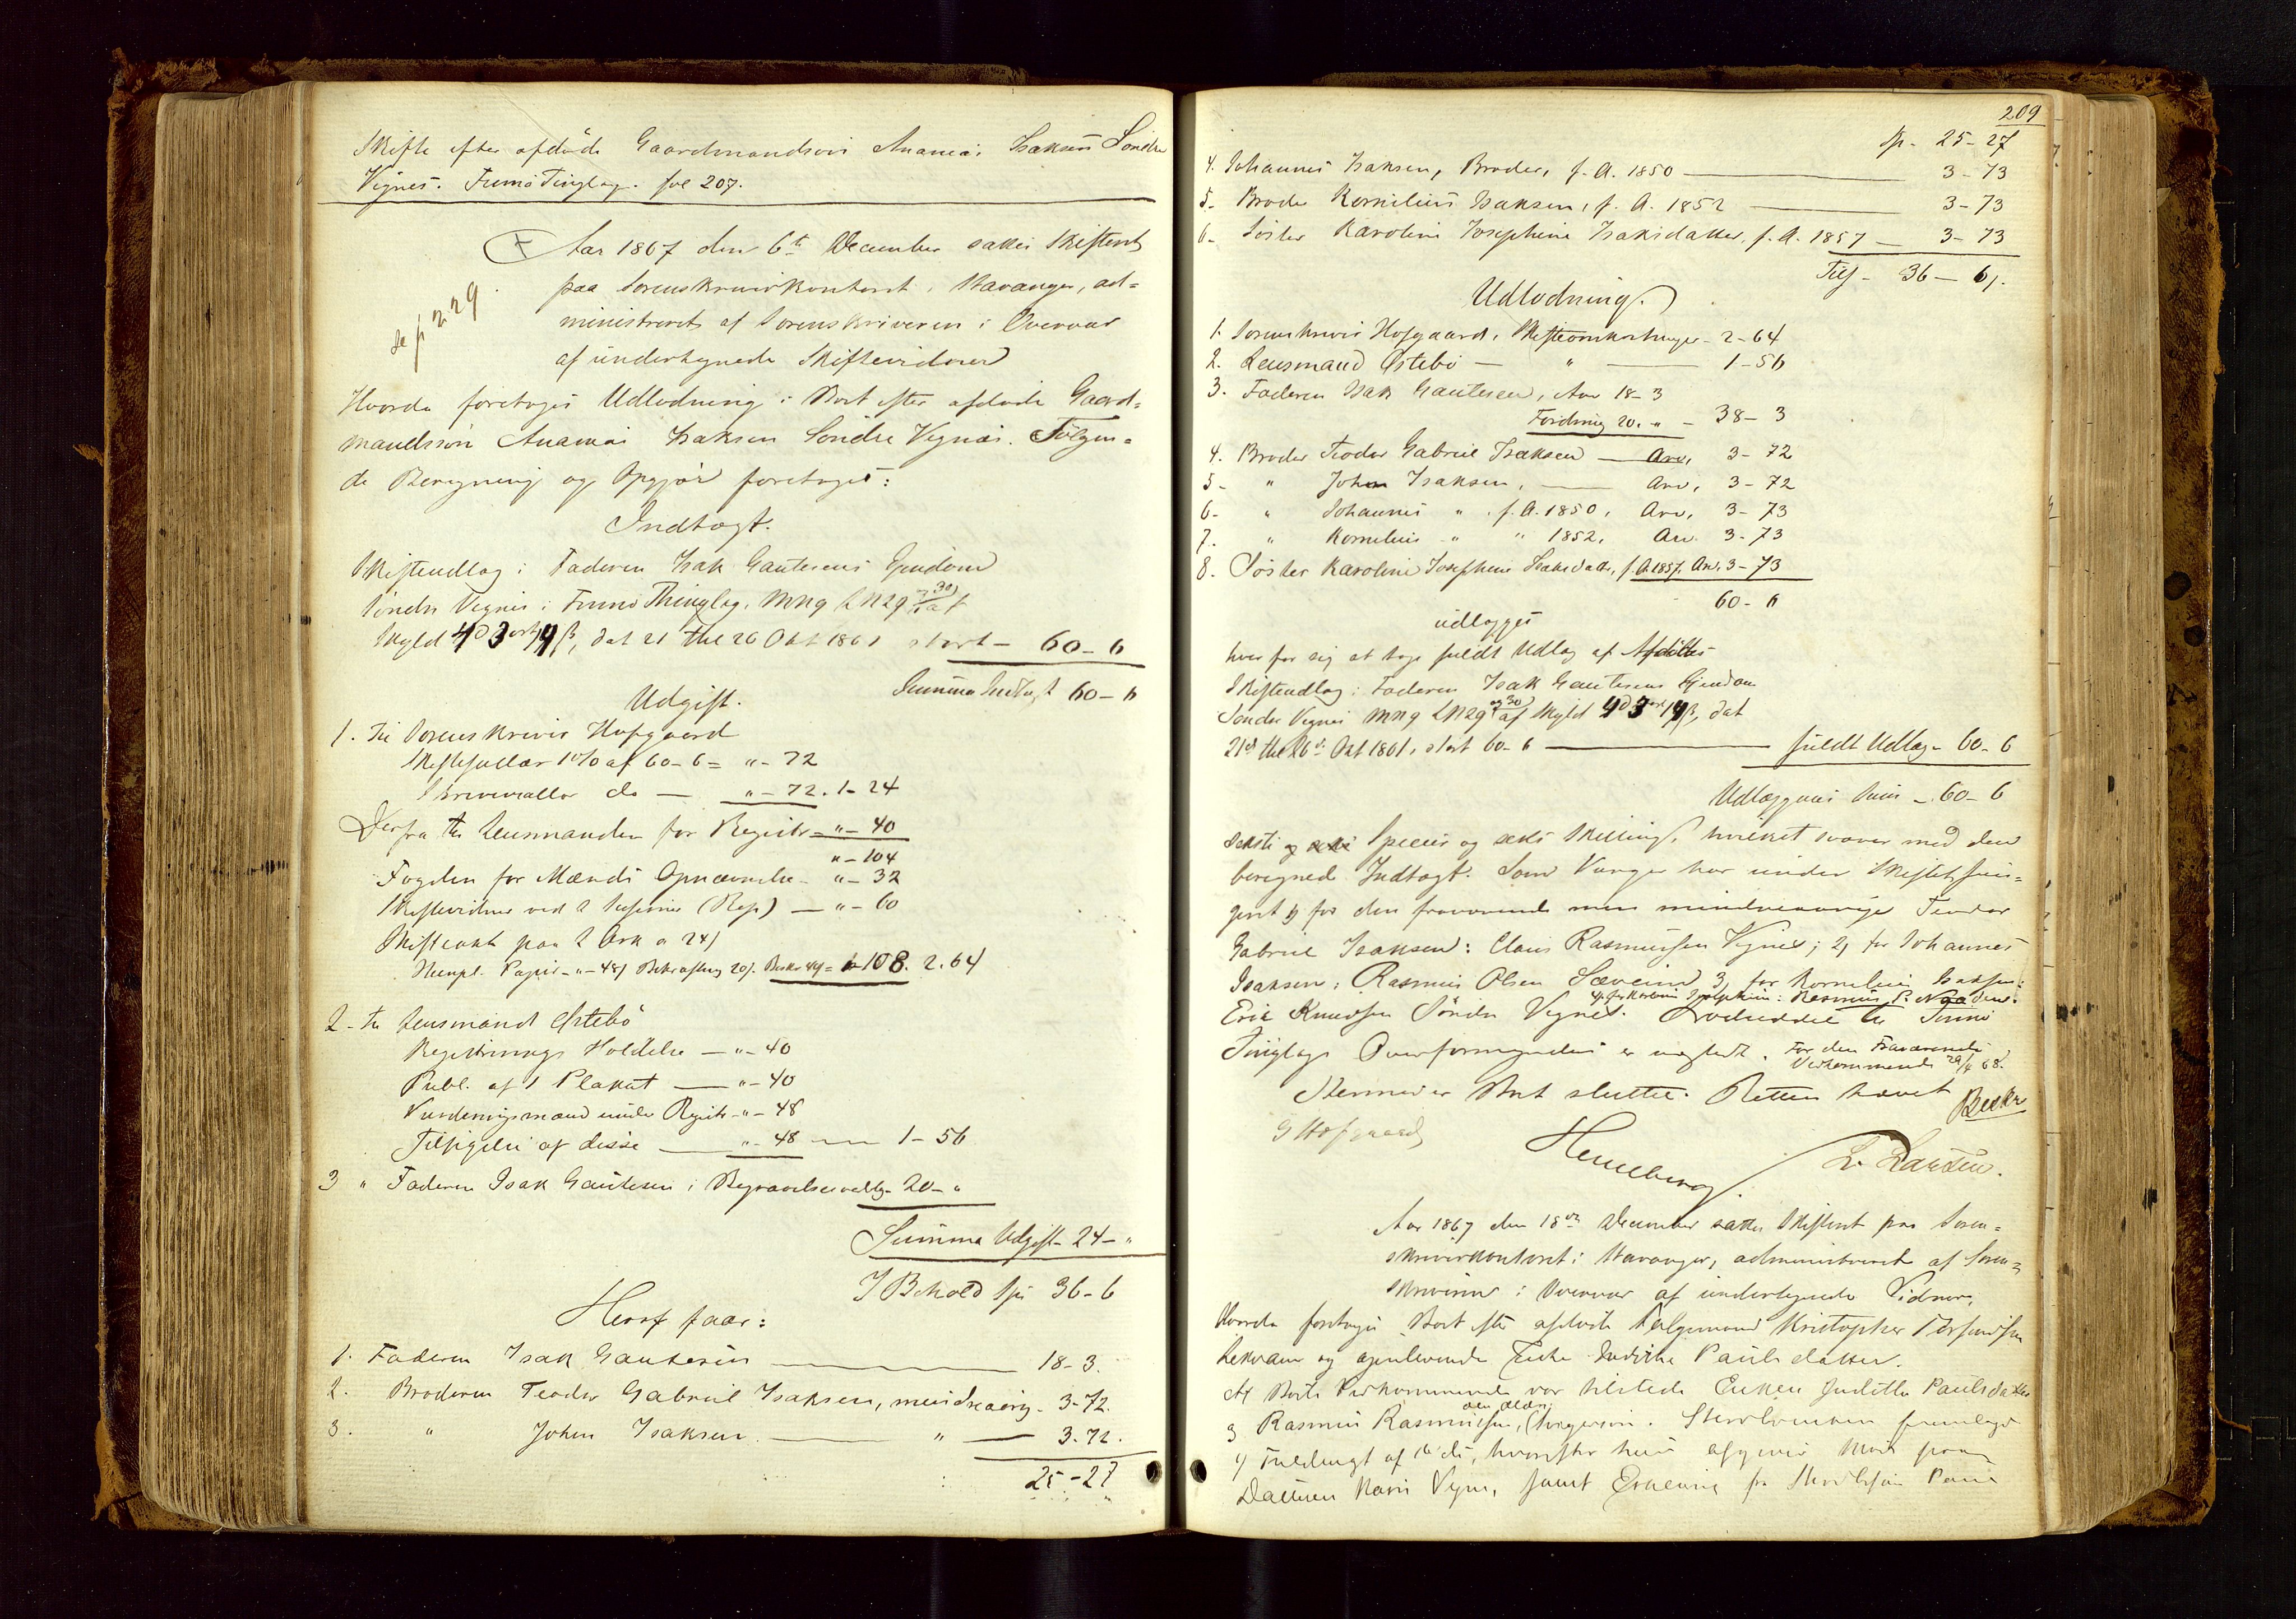 Skifte efter afdöde Gaardmandssön Ananias Isaksen Söndre
Vignes. Finnö Tinglag. fol 207.
Aar 1867 den 6te December sattes Skifteret
paa Sorenskriverkontoret i Stavanger, ad=
ministreret af Sorenskriveren i Overvær
af undertegnede Skiftevidner
se p 229
Hvorda foretoges Udlodning i Boet efter afdöde Gaard=
mandssön Ananias Isaksen Söndre Vignæs. Fölgen=
de Beregning og Opgjör foretoges:
Indtægt.
Skifteudlæg i Faderen Isak Gautesens Ejendom
Söndre Vignes i Finnö Thinglag, M N 9 L N 29 af
Skyld 4 D 3 ort 14 ß, dat 21 thl 26 Okt 1861 stort - 60-6
Summa Indtægt 60-6
Udgift.
1. Til Sorenskriver Hofgaard
Skiftesallær 1% af 60-6 = "-72
Skriversallær do — "-72. 1-24
Derfra til Lensmanden for Registr "-40
"-104
Fogden for Mænds Opnævnelse - "-32
Skiftevidner ved 2 Sessioner (Rep) — "-60
Skifteakt paa 2 Ark a 24/
Stempl. Papir - "-48/ Bekræftelse 20/. Beskr 40/ = 108. 2.64
2- til Lensmand Østebö
Registrerings Holdelse — "-40
Publ. af 1 Plakat — "-40
Vurderingsmænd under Registr - "-48
Tilsigelse af disse — "-48 — 1-56
3 " Faderen Isak Gautesen i Begravelsesudlæg - 20-"
Summa Udgift - 24-"
I Behold Sp 36-6
Heraf faar:
1. Faderen Isak Gautesen — 18-3.
2. Broderen Teodor Gabriel Isaksen, mindreaarig - 3-72.
3. " John Isaksen — " — 3.72.
25-27
209
Sp - 25-27
4. Johannes Isaksen, Broder, f. A. 1850 — 3-73
5- Broder Kornelius Isaksen, f. A. 1852 — 3-73
6- Söster Karoline Josephine Isaksdatter, f. A. 1857 — 3-73
Tils - 36-6.
Udlodning.
1. Sorenskriver Hofgaard, Skifteomkostninger - 2-64
2. Lensmand Østebö — " — 1-56
3. Faderen Isak Gautesen, Arv 18-3
Fordring 20. " - 38-3
4. Broder Teodor Gabriel Isaksen — Arv, 3-72
5- " John Isaksen, — Arv, 3-72
6- " Johannes " f. A. 1850, Arv, 3-73
7. " Kornelius " " 1852, Arv. 3-73
8. Söster Karoline Josephine Isaksdatter, f. A 1857, Arv, 3-73
60-6
udlægges
hver for sig at tage fuldt Udlæg af Afdödes
Skifteudlæg i Faderen Isak Gautesens Ejendom
Söndre Vignes M N 9 L N 29 af Skyld 4 D 3 ort 14 ß, dat
21de thl 26de Okt 1861, stort 60-6 — fuldt Udlæg - 60-6
Udlæggenes Sum - 60-6
Seksti Species og seks Skilling, hvilket svarer med den
beregnede Indtægt. Som Værger har under Skiftet fun=
geret 1) for den fraværende men mindreaarige Teodor
Gabriel Isaksen: Claus Rasmussen Vignes; 2) for Johannes
Isaksen: Rasmus Olsen 3) for Kornelius Isaksen:
4) for Karoline Josephine: Rasmus P.
Erik Knudsen Söndre Vignes. til Finnö
Tinglags Overformynderi er . For den Fraværende
Vedkommende 29/4 68.
Hermed er Boet sluttet. Retten hævet
Beskr
G Hofgaard
Henneberg. L. Larsen.
Aar 1867 den 18de December sattes Skifteret paa Soren=
skriverkontoret i Stavanger, administreret af Soren=
skriveren i Overvær af undertegnede Vidner,
Hvorda foretoges Boet efter afdöde Kristopher
og gjenlevende Enke Judithe Paulsdatter.
Af Boets Vedkommende var tilstede Enken Judithe Paulsdatter
og Rasmus Rasmussen, den ældre, . fremlagde
1) Fuldmagt af 16 ds, hvorefter hun paa
Datteren , samt Erklæring fra